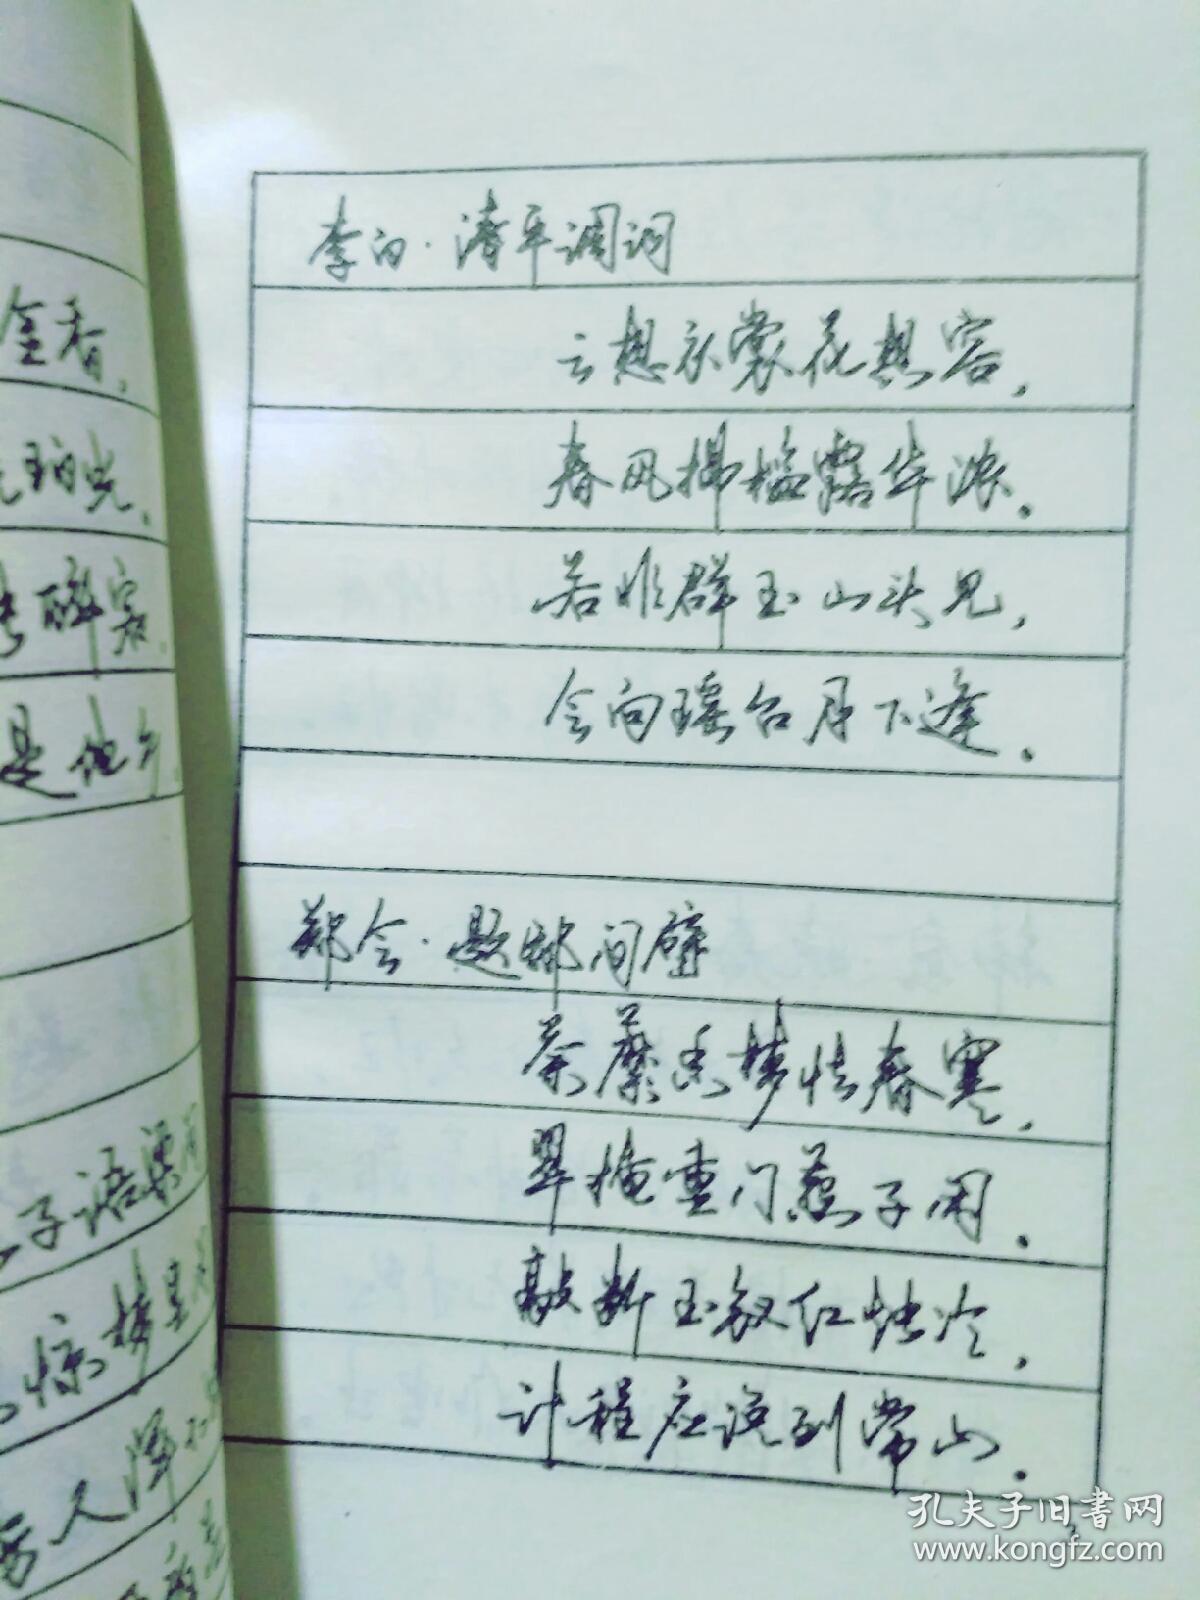 金香,
珀光。
醉客,
是他乡。
子语梁间
惊梦里
人浑不
李白·清平调词
云想衣裳花想容,
春风拂槛露华浓。
若非群玉山头见,
会向瑶台月下逢。
郑会·题邸间壁
荼蘼香梦怯春寒,
翠掩重门燕子闲。
敲断玉钗红烛冷,
计程应说到常山。
孔夫子旧书网
www.kongfz.com